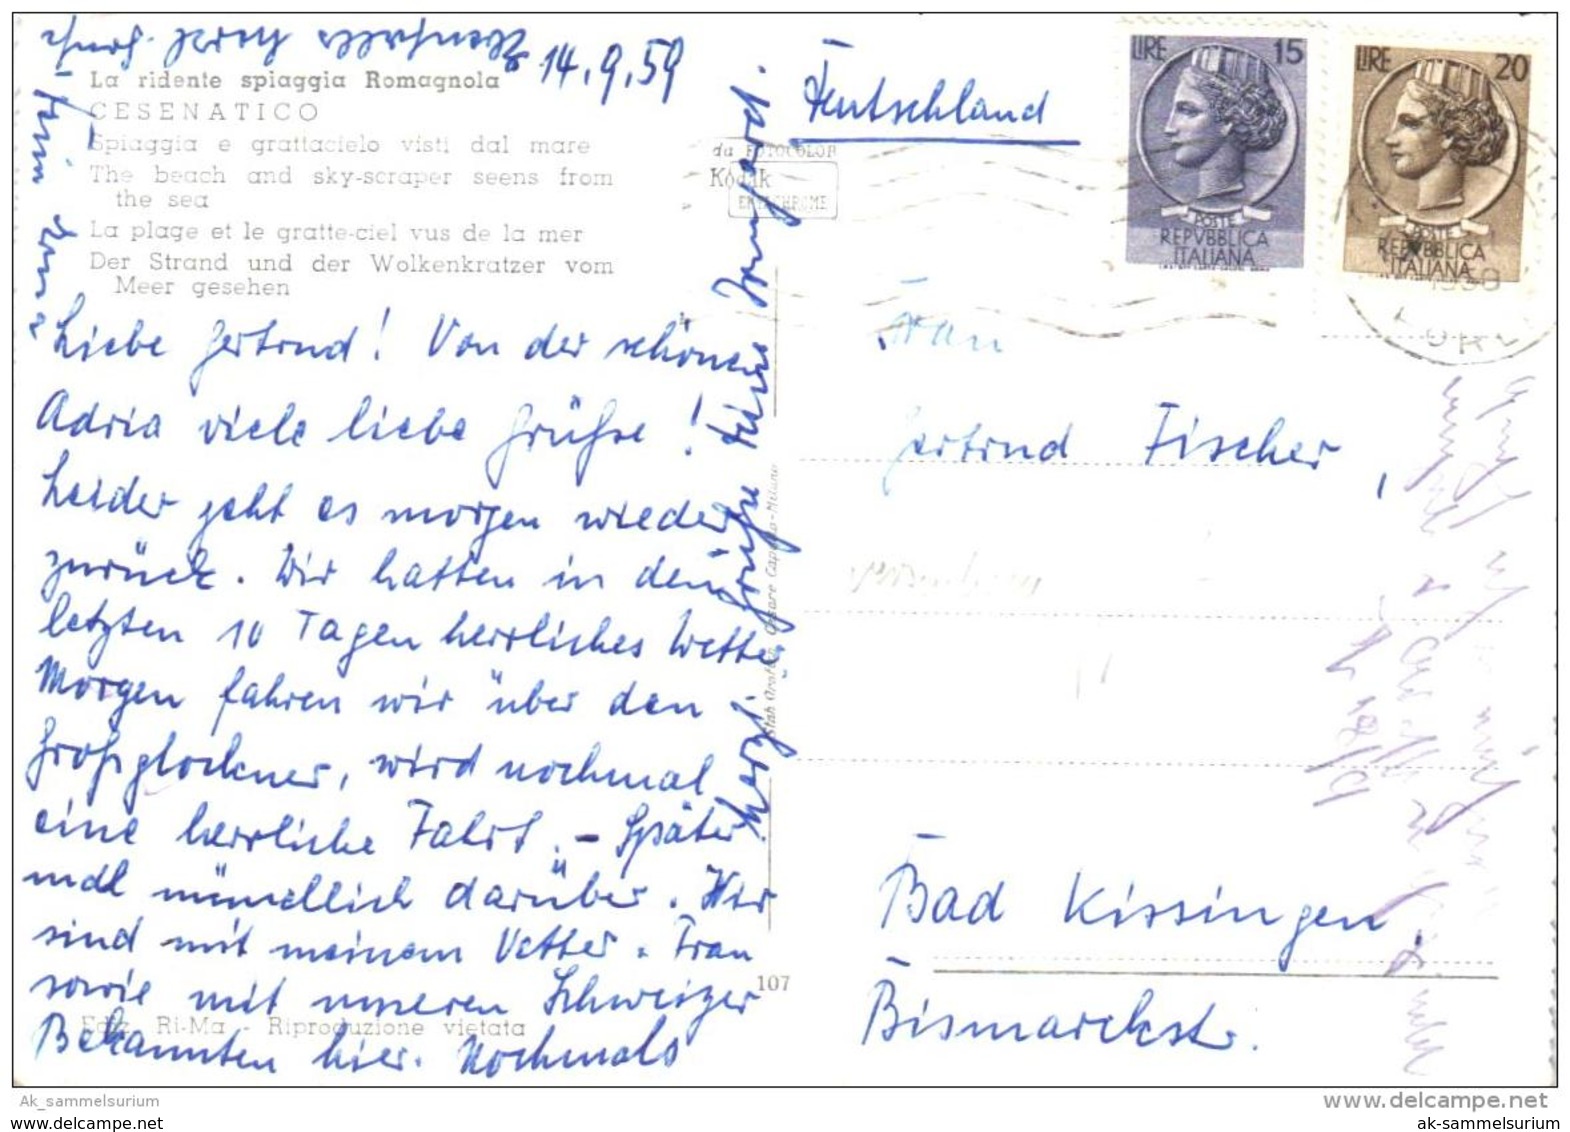 14.9.59
La ridente spiaggia Romagnola
CESENATICO
Spiaggia e grattacielo visti dal mare
The beach and sky-scraper seens from
the sea
La plage et le gratte-ciel vus de la mer
Der Strand und der Wolkenkratzer vom
Meer gesehen
Liebe Gertrud! Von der schönen
Adria viele liebe Grüsse!
Leider geht es morgen wieder
zurück. Wir hatten in den
letzten 10 Tagen herrliches Wetter
Morgen fahren wir über den
Großglockner, wird nochmal
eine herrliche Fahrt. - Später
mal mündlich darüber. Wir
sind mit meinem Vetter u. Frau
sowie mit unseren Schweizer
Bekannten hier. Nochmals
herzl. Grüsse Deine Irmgard.
Ediz. Ri-Ma - Riproduzione vietata
da FOTOCOLOR
Kodak
EKTACHROME
107
Deutschland
LIRE 15
POSTE
REPVBBLICA
ITALIANA
LIRE 20
POSTE
REPVBBLICA
ITALIANA
Frau
Gertrud Fischer,
Bad Kissingen
Bismarckstr.
Ak_sammelsurium
www.delcampe.net
www.ak-sammelsurium.de
ak-sammelsurium